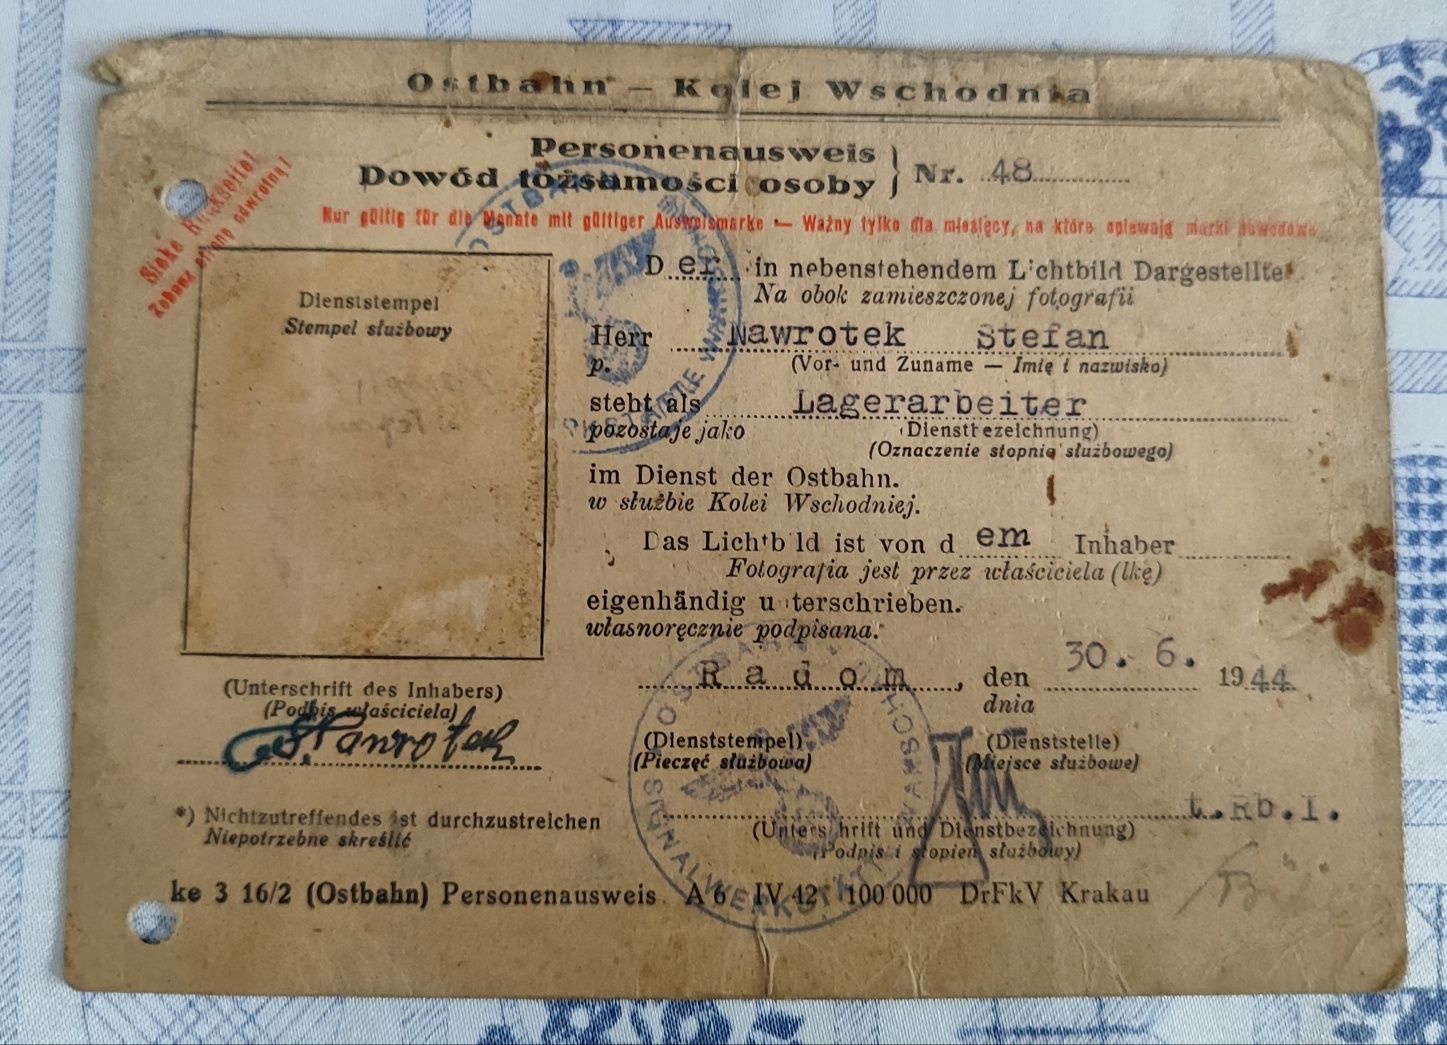 Ostbahn — Kolej Wschodnia
Personenausweis
Dowód tożsamości osoby } Nr. 48
Siehe Rückseite!
Zobacz stronę odwrotną!
Nur gültig für die Monate mit gültiger Ausweismarke — Ważny tylko dla miesięcy, na które opiewają marki dowodowe
Dienststempel
Stempel służbowy
Der in nebenstehendem Lichtbild Dargestellte
Na obok zamieszczonej fotografii
Herr Nawrotek Stefan
p. (Vor- und Zuname — Imię i nazwisko)
steht als Lagerarbeiter
pozostaje jako (Dienstbezeichnung)
(Oznaczenie stopnia służbowego)
im Dienst der Ostbahn.
w służbie Kolei Wschodniej.
Das Lichtbild ist von dem Inhaber
Fotografia jest przez właściciela (lkę)
eigenhändig unterschrieben.
własnoręcznie podpisana.
Radom, den 30. 6. 1944
dnia
(Unterschrift des Inhabers)
(Podpis właściciela)
St. Nawrotek
(Dienststempel) (Dienststelle)
(Pieczęć służbowa) (Miejsce służbowe)
t.Rb.I.
(Unterschrift und Dienstbezeichnung)
(Podpis i stopień służbowy)
*) Nichtzutreffendes ist durchzustreichen
Niepotrzebne skreślić
ke 3 16/2 (Ostbahn) Personenausweis. A 6 IV 42 100 000 DrFkV Krakau